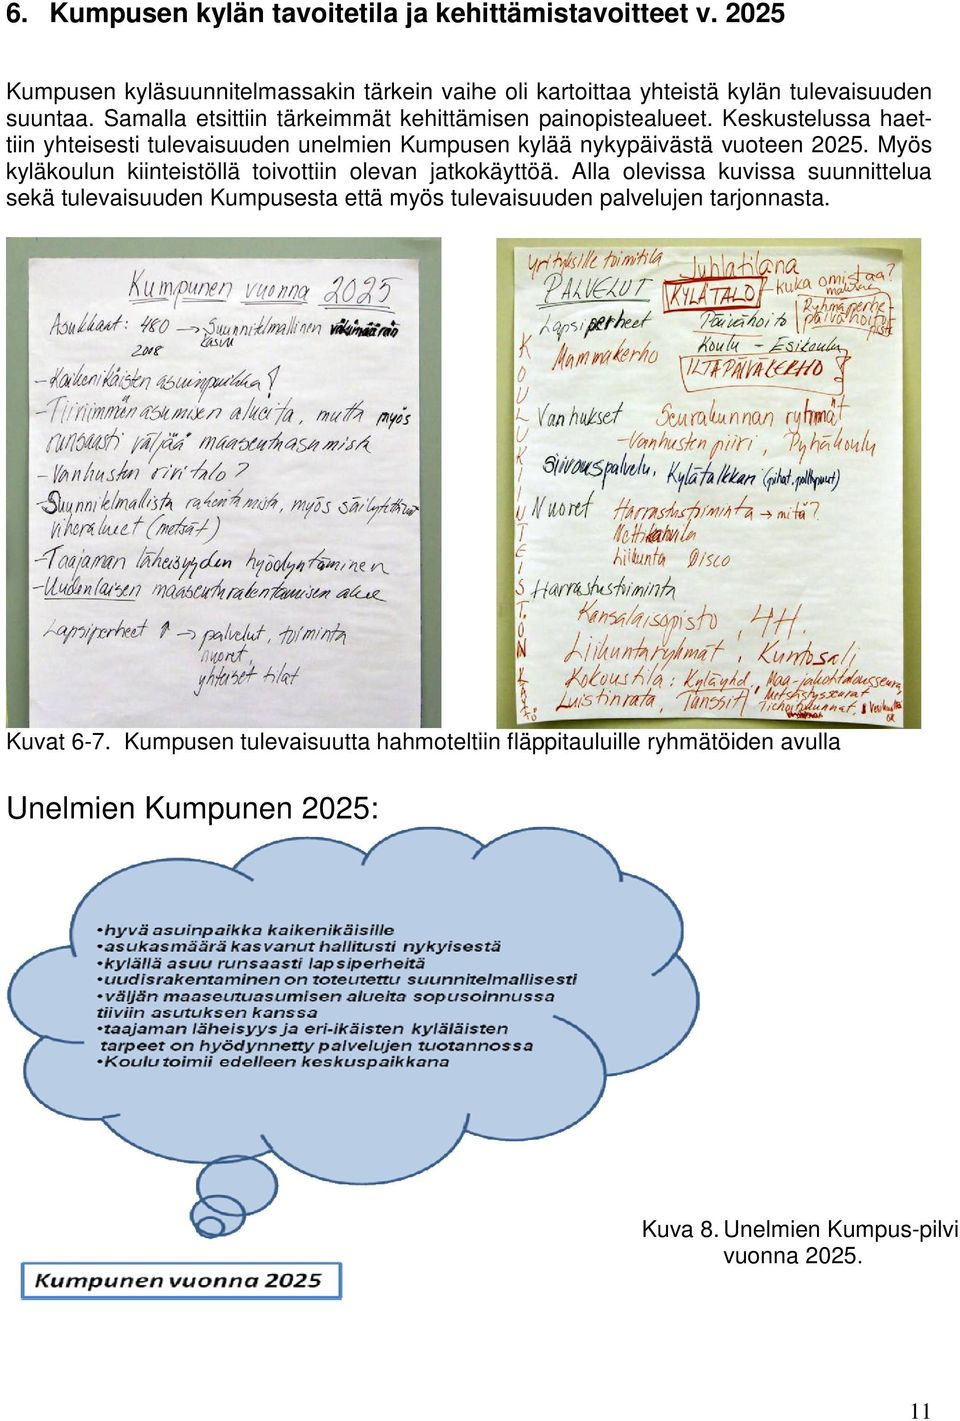 6. Kumpusen kylän tavoitetila ja kehittämistavoitteet v. 2025
Kumpusen kyläsuunnitelmassakin tärkein vaihe oli kartoittaa yhteistä kylän tulevaisuuden
suuntaa. Samalla etsittiin tärkeimmät kehittämisen painopistealueet. Keskustelussa haet-
tiin yhteisesti tulevaisuuden unelmien Kumpusen kylää nykypäivästä vuoteen 2025. Myös
kyläkoulun kiinteistöllä toivottiin olevan jatkokäyttöä. Alla olevissa kuvissa suunnittelua
sekä tulevaisuuden Kumpusesta että myös tulevaisuuden palvelujen tarjonnasta.
Kumpunen vuonna 2025
Asukkaat: 480 → Suunnitelmallinen väkimäärän
2008 kasvu
- Kaikenikäisten asuinpaikka!
- Tiiviimmän asumisen alueita, mutta myös
runsaasti väljää maaseutuasumista
- Vanhusten rivitalo?
- Suunnitelmallista rakentamista, myös säilytettävät
viheralueet (metsät)
- Taajaman läheisyyden hyödyntäminen
- Uudenlaisen maaseuturakentamisen alue
Lapsiperheet ↑ → palvelut, toiminta
nuoret,
yhteiset tilat
Yrityksille toimitila Juhlatilana
PALVELUT KYLÄTALO - kuka omistaa?
Ryhmäperhe-
päivähoito
Lapsiperheet Päivähoito
Koulu - Esikoulu
Mammakerho ILTAPÄIVÄKERHO
Vanhukset Seurakunnan ryhmät
- Vanhusten piiri, Pyhäkoulu
Siivouspalvelu, Kylätalkkari (pihat, polttopuut)
Nuoret Harrastustoiminta → mitä?
Nettikahvila
Liikunta Disco
Harrastustoiminta
Kansalaisopisto, 4H.
Liikuntaryhmät, Kuntosali
Kokoustila: Kyläyhd., Maa-ja kotitalousseura,
Luistinrata, Tanssit Metsästysseurat
Tiehoitokunnat,
KOULUKIINTEISTÖN KÄYTTÖ
Kuvat 6-7. Kumpusen tulevaisuutta hahmoteltiin fläppitauluille ryhmätöiden avulla
Unelmien Kumpunen 2025:
•hyvä asuinpaikka kaikenikäisille
•asukasmäärä kasvanut hallitusti nykyisestä
•kylällä asuu runsaasti lapsiperheitä
•uudisrakentaminen on toteutettu suunnitelmallisesti
•väljän maaseutuasumisen alueita sopusoinnussa
tiiviin asutuksen kanssa
•taajaman läheisyys ja eri-ikäisten kyläläisten
tarpeet on hyödynnetty palvelujen tuotannossa
•Koulu toimii edelleen keskuspaikkana
Kuva 8. Unelmien Kumpus-pilvi
vuonna 2025.
Kumpunen vuonna 2025
11